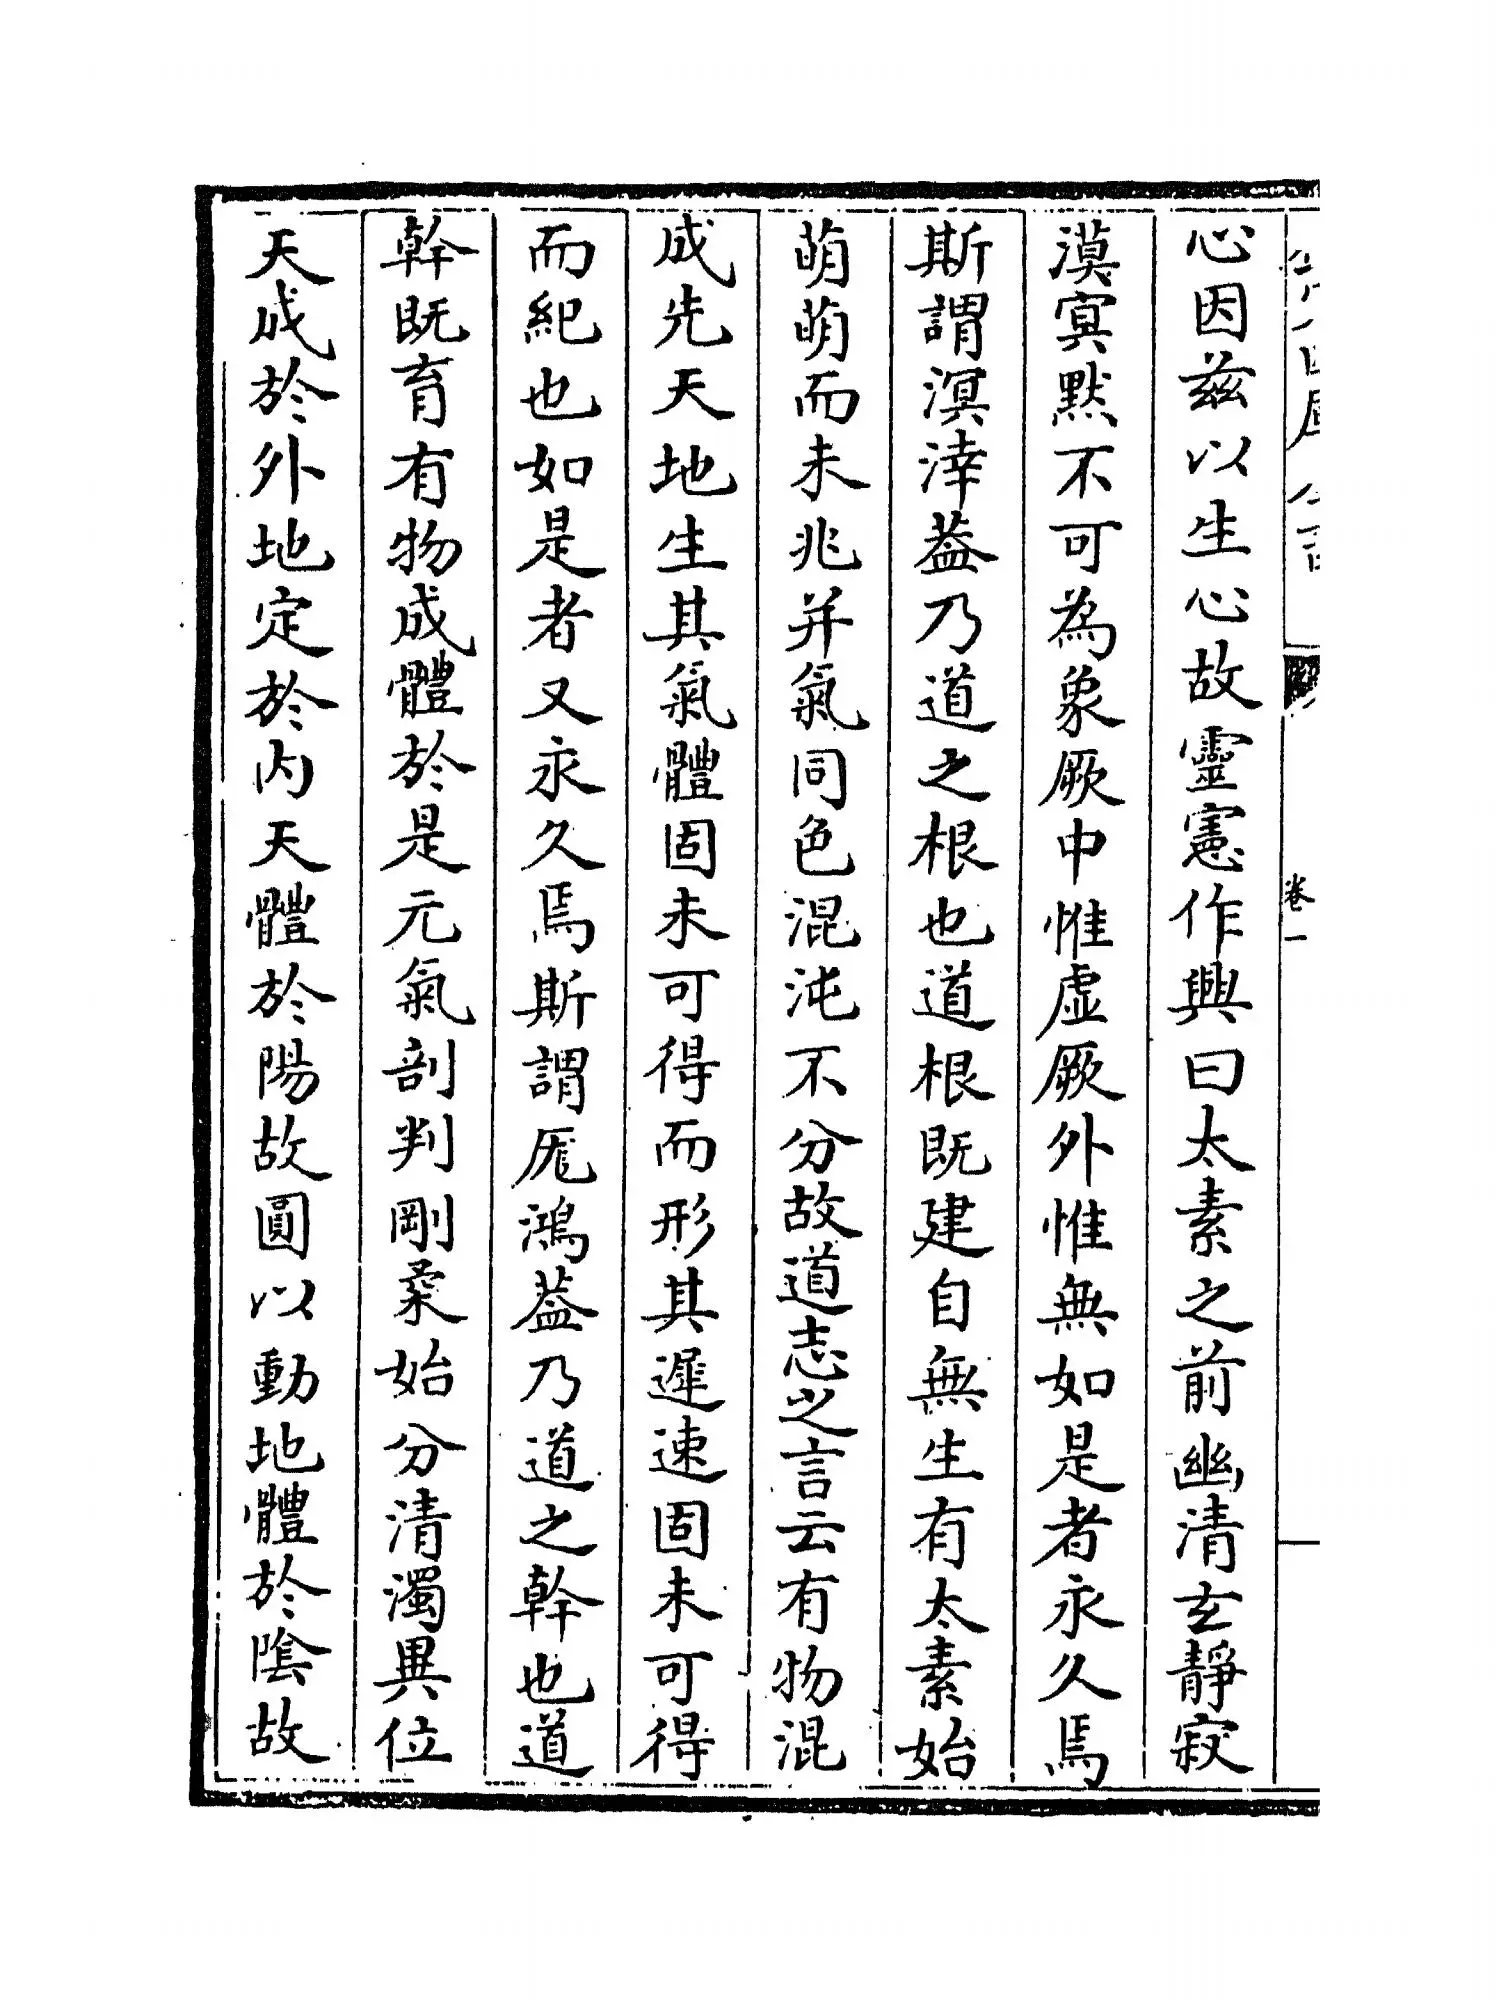 心因兹以生心故靈憲作興曰太素之前幽清玄靜寂
漠寞黙不可為象厥中惟虛厥外惟無如是者永久焉
斯謂溟涬葢乃道之根也道根既建自無生有太素始
萌萌而未兆并氣同色混沌不分故道志之言云有物混
成先天地生其氣體固未可得而形其遲速固未可得
而紀也如是者又永久焉斯謂厖鴻葢乃道之幹也道
幹既育有物成體於是元氣剖判剛柔始分清濁異位
天成於外地定於内天體於陽故圓以動地體於隂故
卷一